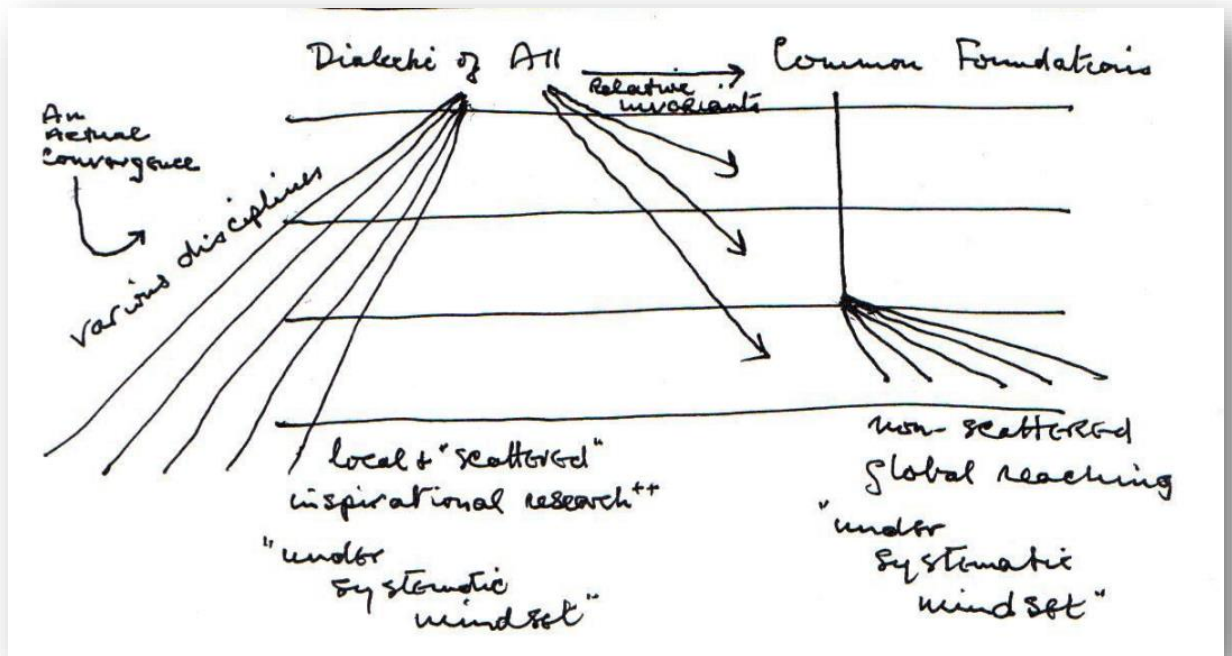 Dialectic of All
Relative
invariants
Common Foundations
An
Actual
Convergence
various disciplines
local + "scattered"
inspirational research++
"under
systematic
mindset"
non-scattered
global reaching
"under
systematic
mindset"